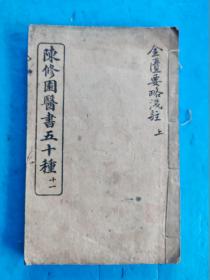 金匱要略淺註 上
陳修園醫書五十種 十一